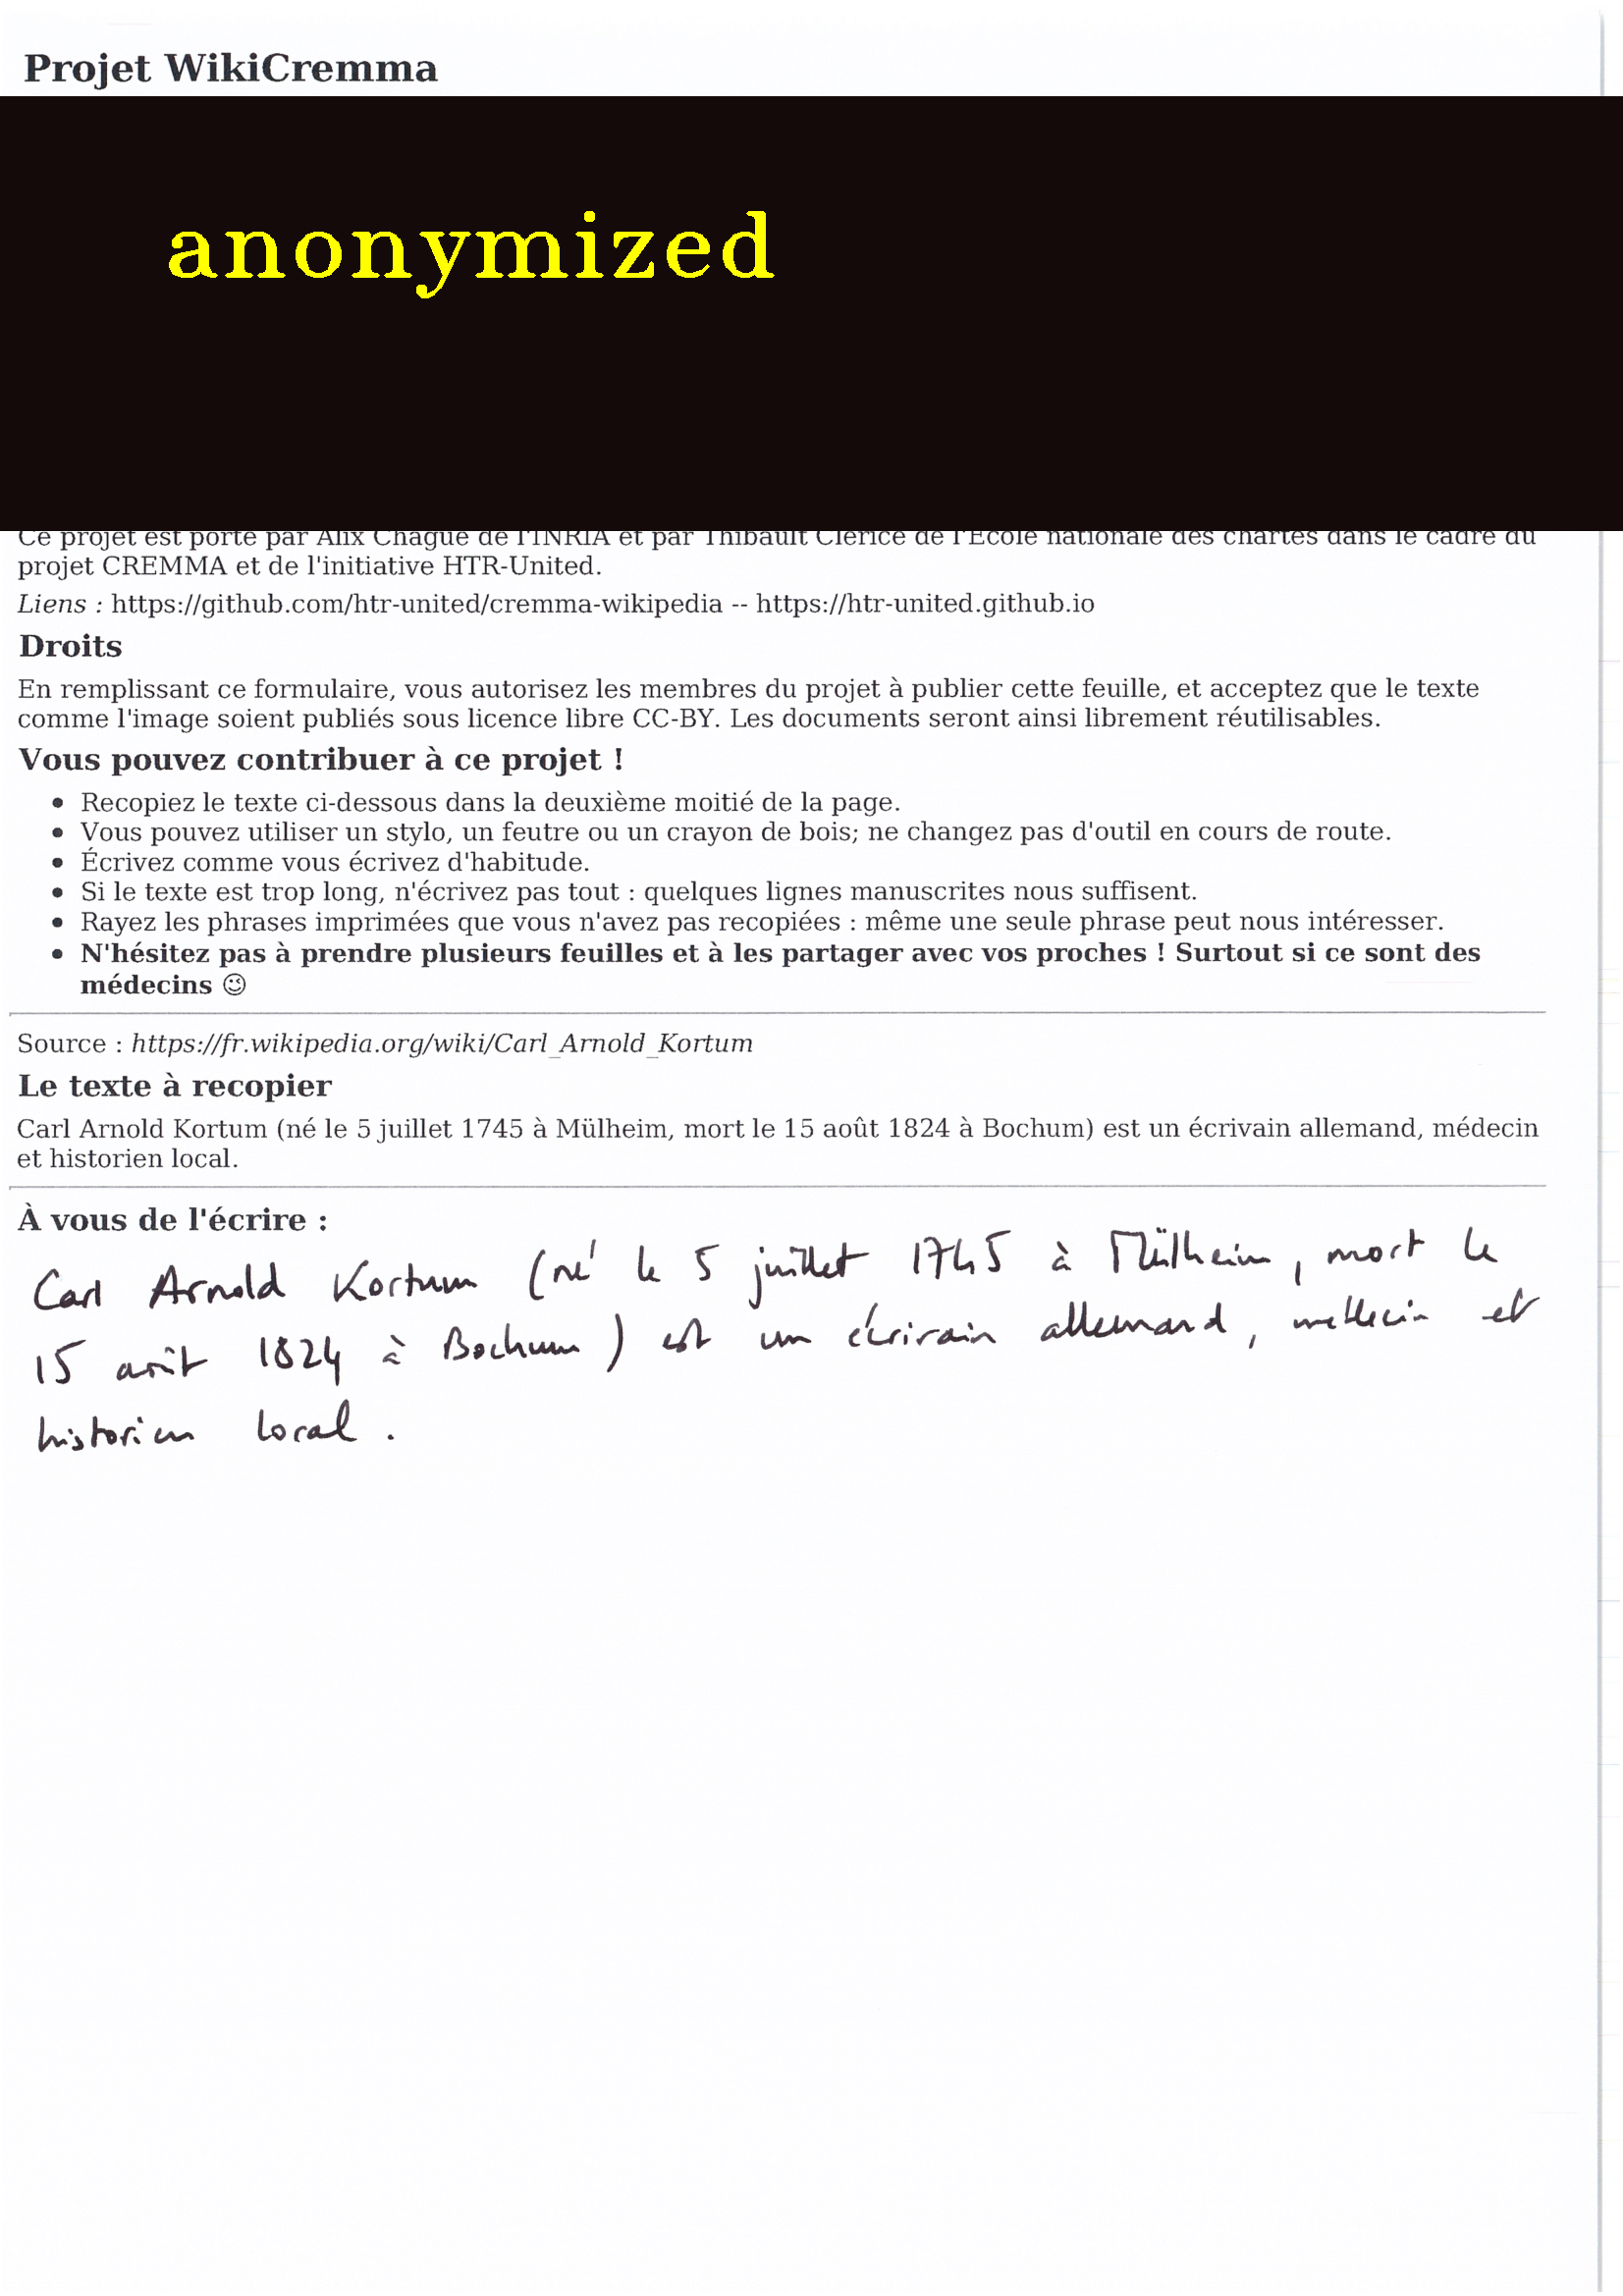 Projet WikiCremma
anonymized
Ce projet est porté par Alix Chagué de l'INRIA et par Thibault Clérice de l'École nationale des chartes dans le cadre du
projet CREMMA et de l'initiative HTR-United.
Liens : https://github.com/htr-united/cremma-wikipedia -- https://htr-united.github.io
Droits
En remplissant ce formulaire, vous autorisez les membres du projet à publier cette feuille, et acceptez que le texte
comme l'image soient publiés sous licence libre CC-BY. Les documents seront ainsi librement réutilisables.
Vous pouvez contribuer à ce projet !
• Recopiez le texte ci-dessous dans la deuxième moitié de la page.
• Vous pouvez utiliser un stylo, un feutre ou un crayon de bois; ne changez pas d'outil en cours de route.
• Écrivez comme vous écrivez d'habitude.
• Si le texte est trop long, n'écrivez pas tout : quelques lignes manuscrites nous suffisent.
• Rayez les phrases imprimées que vous n'avez pas recopiées : même une seule phrase peut nous intéresser.
• N'hésitez pas à prendre plusieurs feuilles et à les partager avec vos proches ! Surtout si ce sont des
médecins 😉
Source : https://fr.wikipedia.org/wiki/Carl_Arnold_Kortum
Le texte à recopier
Carl Arnold Kortum (né le 5 juillet 1745 à Mülheim, mort le 15 août 1824 à Bochum) est un écrivain allemand, médecin
et historien local.
À vous de l'écrire :
Carl Arnold Kortum (né le 5 juillet 1745 à Mülheim, mort le
15 août 1824 à Bochum) est un écrivain allemand, médecin et
historien local.